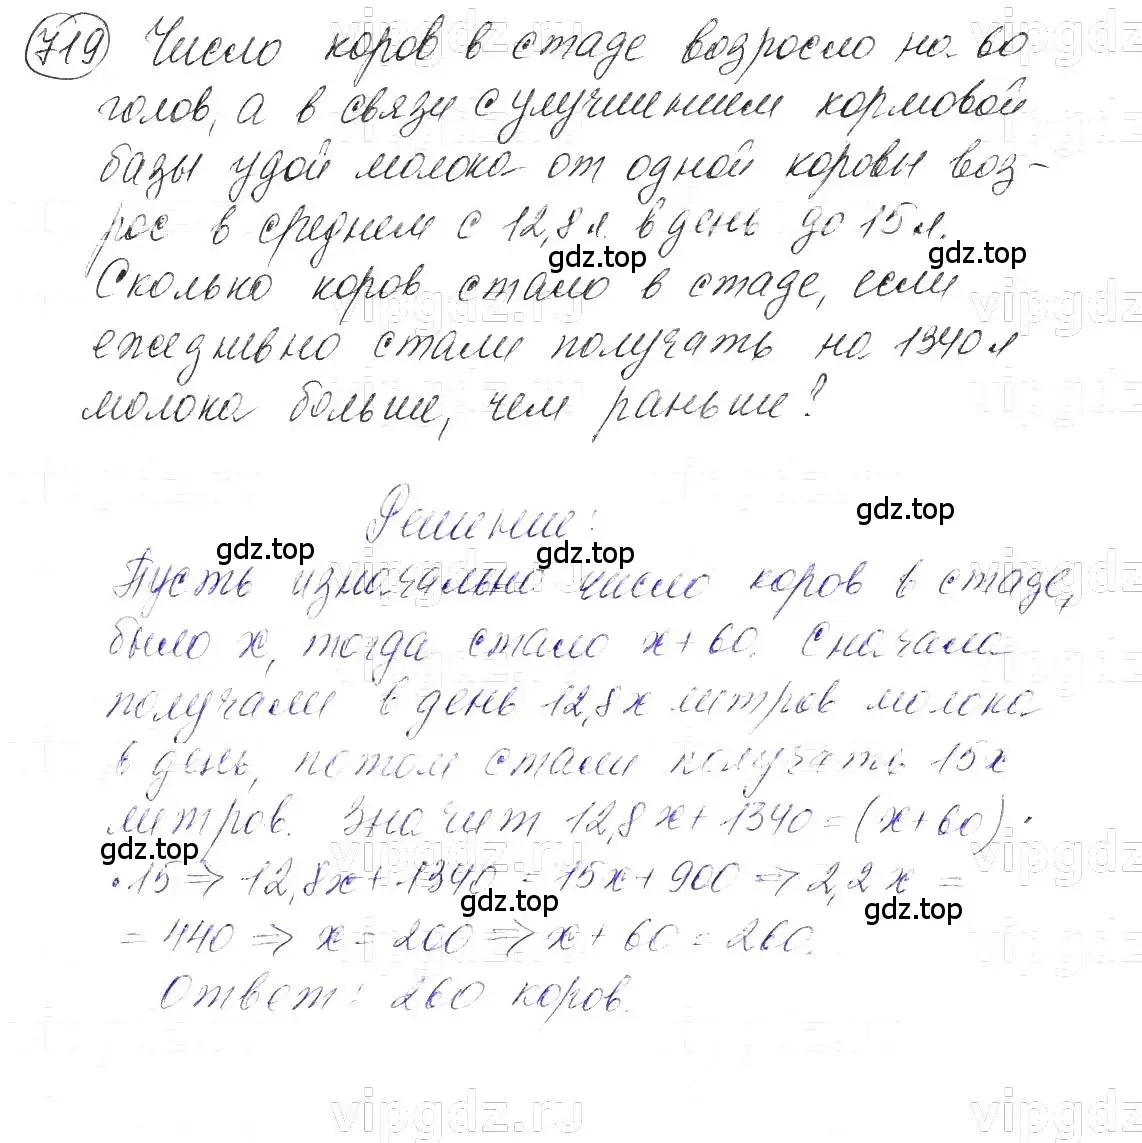 719 Число коров в стаде возросло на 60
голов, а в связи с улучшением кормовой
базы удой молока от одной коровы воз-
рос в среднем с 12,8 л. в день до 15 л.
gdz.top gdz.top
Сколько коров стало в стаде, если
ежедневно стали получать на 1340 л
молока больше, чем раньше?
Решение:
gdz.top gdz.top gdz.top
Пусть изначально число коров в стаде,
было x, тогда стало x+60. Сначала
получали в день 12,8x литров молока
в день, потом стали получать 15x
литров. Значит 12,8x+1340=(x+60)·
gdz.top
·15 => 12,8x+1340=15x+900 => 2,2x=
gdz.top gdz.top
=440 => x=200 => x+60=260.
Ответ: 260 коров.
vipgdz.ru vipgdz